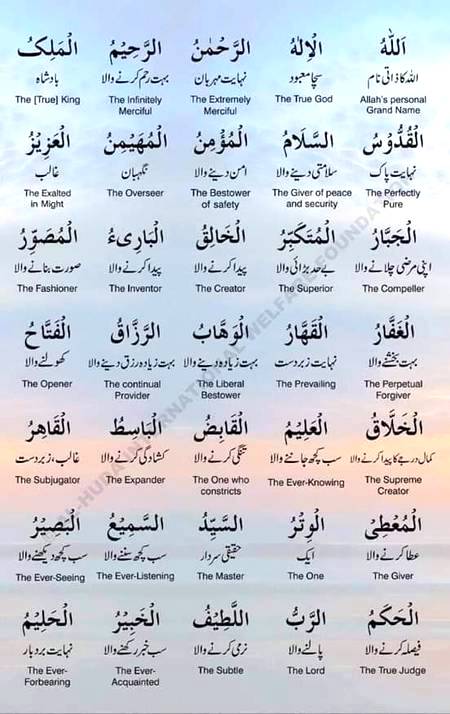 اَللّٰهُ الْاِلٰهُ الرَّحْمٰنُ الرَّحِيْمُ الْمَلِكُ
اللہ کا ذاتی نام سچا معبود نہایت مہربان بہت رحم کرنے والا بادشاہ
The [True] King The Infinitely The Extremely The True God Allah's personal
Merciful Merciful Grand Name
الْقُدُّوْسُ السَّلَامُ الْمُؤْمِنُ الْمُهَيْمِنُ الْعَزِيْزُ
نہایت پاک سلامتی دینے والا امن دینے والا نگہبان غالب
The Exalted The Overseer The Bestower The Giver of peace The Perfectly
in Might of safety and security Pure
الْجَبَّارُ الْمُتَكَبِّرُ الْخَالِقُ الْبَارِىءُ الْمُصَوِّرُ
اپنی مرضی چلانے والا بے حد بڑائی والا پیدا کرنے والا پیدا کرنے والا صورت بنانے والا
The Fashioner The Inventor The Creator The Superior The Compeller
الْغَفَّارُ الْقَهَّارُ الْوَهَّابُ الرَّزَّاقُ الْفَتَّاحُ
بہت بخشنے والا نہایت زبردست بہت زیادہ دینے والا بہت زیادہ رزق دینے والا کھولنے والا
The Opener The continual The Liberal The Prevailing The Perpetual
Provider Bestower Forgiver
الْخَلَّاقُ الْعَلِيْمُ الْقَابِضُ الْبَاسِطُ الْقَاهِرُ
کمال درجے کا پیدا کرنے والا سب کچھ جاننے والا تنگی کرنے والا کشادگی کرنے والا غالب، زبردست
The Subjugator The Expander The One who The Ever-Knowing The Supreme
constricts Creator
الْمُعْطِىْ الْوِتْرُ السَّيِّدُ السَّمِيْعُ الْبَصِيْرُ
عطا کرنے والا ایک حقیقی سردار سب کچھ سننے والا سب کچھ دیکھنے والا
The Ever-Seeing The Ever-Listening The Master The One The Giver
الْحَكَمُ الرَّبُّ اللَّطِيْفُ الْخَبِيْرُ الْحَلِيْمُ
فیصلہ کرنے والا پالنے والا نرمی کرنے والا سب خبر رکھنے والا نہایت بردبار
The Ever- The Ever- The Subtle The Lord The True Judge
Forbearing Acquainted
AL-HUDA INTERNATIONAL WELFARE FOUNDATION